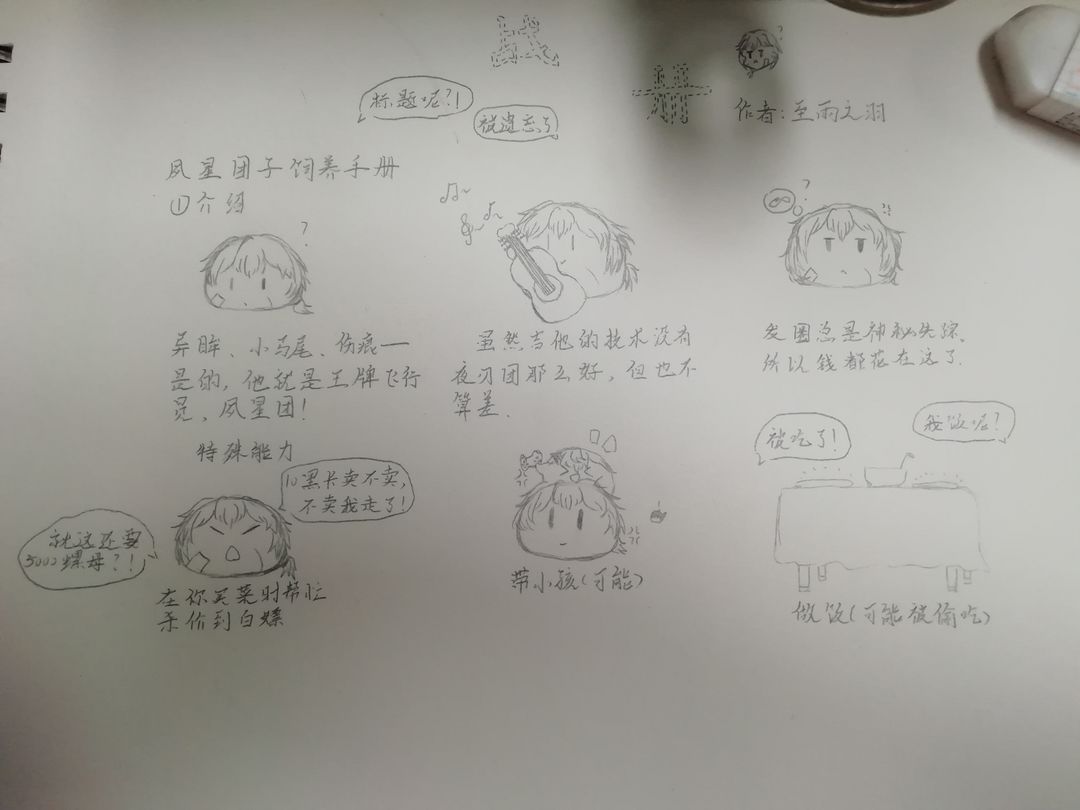 标题呢?!
被遗忘了
作者:至雨之羽
夙星团子饲养手册
①介绍
异眸、小马尾、伤痕一
是的,他就是王牌飞行
员、夙星团!
虽然吉他的技术没有
夜刃团那么好,但也不
算差.
发圈总是神秘失踪,
所以钱都花在这了.
特殊能力
10黑卡卖不卖,
不卖我走了!
就这还要
5000螺母?!
在你买菜时帮忙
杀价到白嫖
带小孩(可能)
被吃了!
我饭呢?
做饭(可能被偷吃)